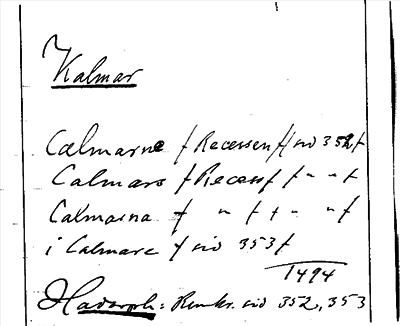 Kalmar
Calmarne / Recessen / / sid 352 /
Calmars / Recess / / " " /
Calmarna / " / / " " /
i Calmare / sid 353 /
1494
Hadorph: Rimkr. sid 352, 353